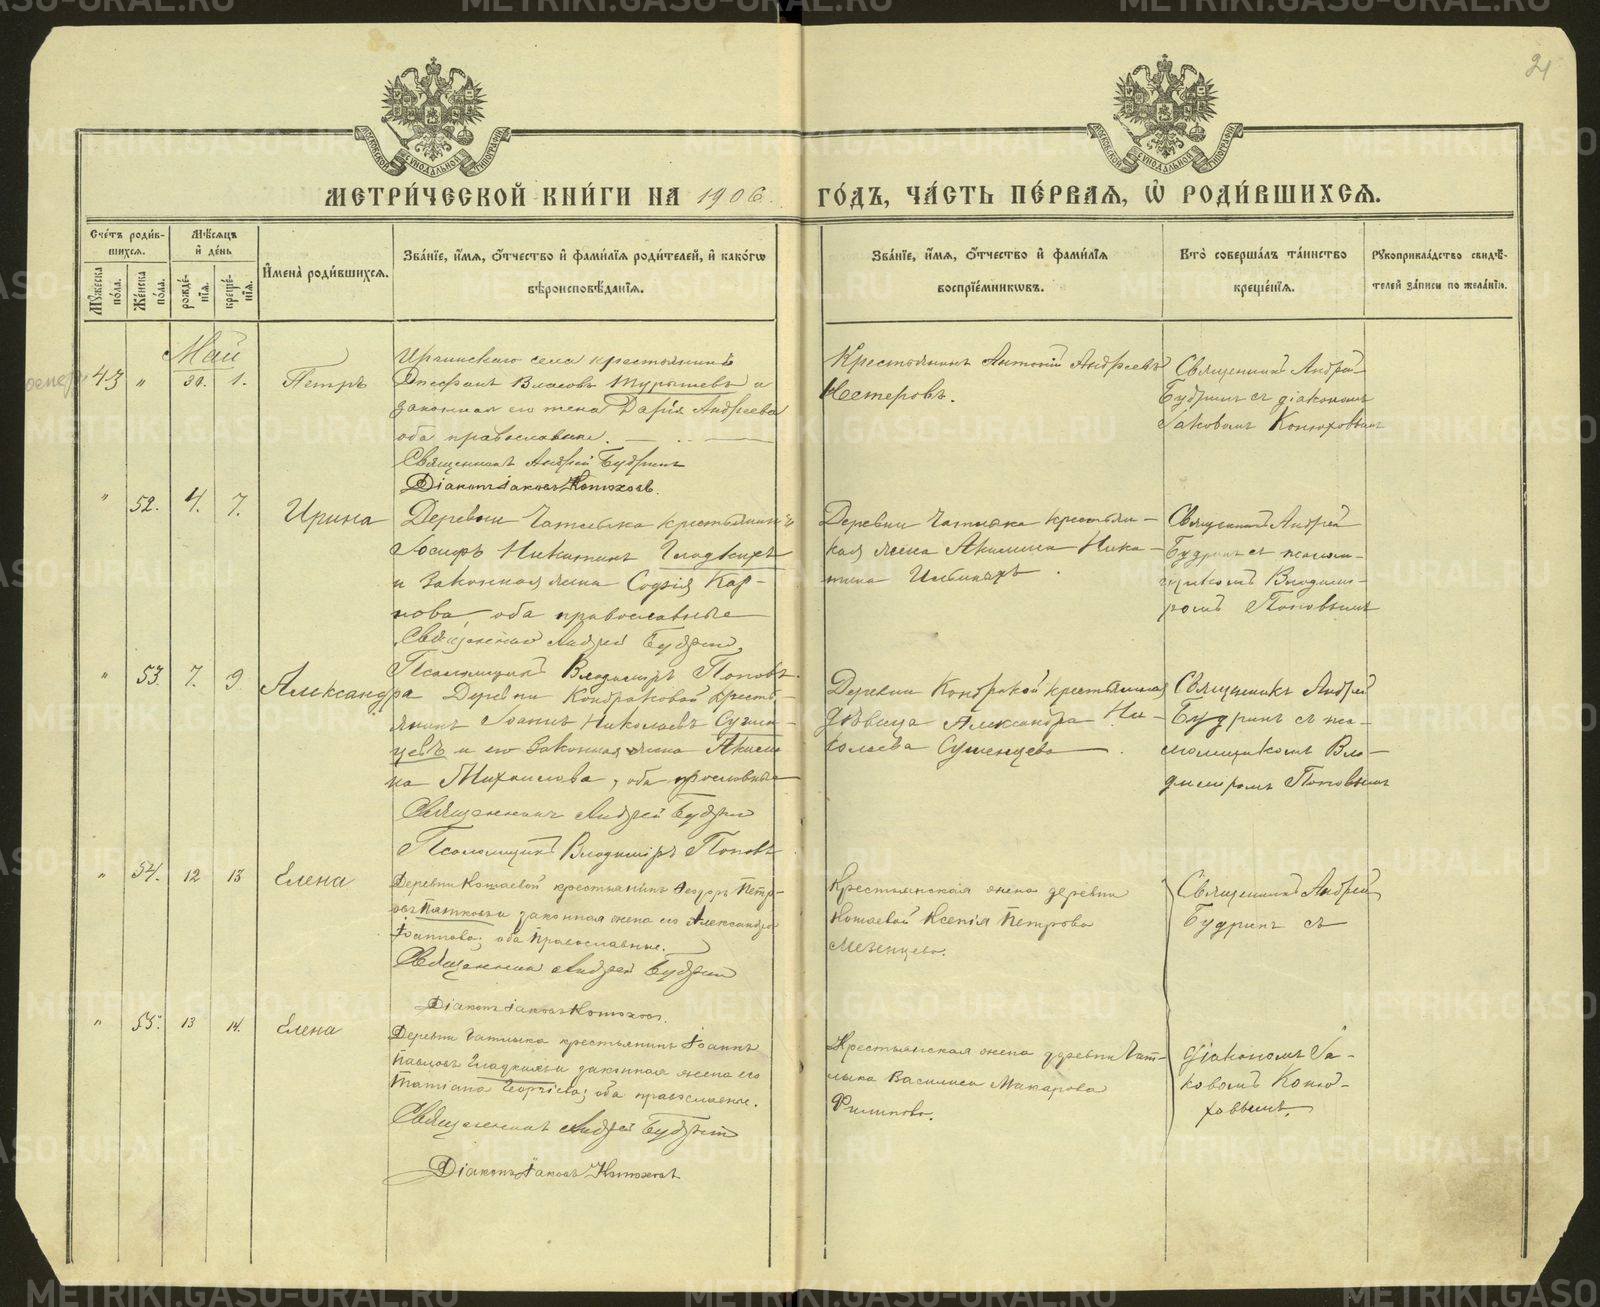 21
МОСКОВСКОЙ СѴНОДАЛЬНОЙ ТИПОГРАФІИ
МОСКОВСКОЙ СѴНОДАЛЬНОЙ ТИПОГРАФІИ
МЕТРИ́ЧЕСКОЙ КНИ́ГИ НА 1906. ГО́ДЪ, ЧА́СТЬ ПЕ́РВАЯ, Ѽ РОДИ́ВШИХСѦ.
Сче́тъ роди́в-
шихся.
Мѣ́сяцъ
и́ де́нь
Му́жеска по́ла.
Же́нска по́ла.
рожде́-
нїя.
креще́-
нїя.
И҆мена̀ роди́вшихся.
Зва́нїе, и҆́мя, ѻ҆́тчество и҆ фами́лїя роди́телей, и҆ како́гѡ
вѣроисповѣ́данїя.
Зва́нїе, и҆́мя, ѻ҆́тчество и҆ фами́лїя
воспрїе́мникѡвъ.
Кто̀ соверша́лъ та́инство
креще́нїя.
Рꙋкоприкла́дство свидѣ́-
телей за́писи по жела́нїю.
Май
43 " 30. 1. Петръ
Иргинскаго села крестьянинъ
Власовъ Турышевъ и
законная его жена Дарія Андреева
оба православные.
Священникъ Андрей Будринъ
Діаконъ Іаковъ Конюховъ.
Крестьянинъ Антоній Андреевъ
Нестеровъ.
Священникъ Андрей
Будринъ съ діакономъ
Іаковомъ Конюховымъ
" 52. 4. 7. Ирина
Деревни Чатлыка крестьянинъ
Іосифъ Никитинъ Гладкихъ
и законная жена Софія Кар-
пова, оба православные
Священникъ Андрей Будринъ
Псаломщикъ Владиміръ Поповъ.
Деревни Чатлыка крестьян-
ская жена Акилина Ники-
тина
Священникъ Андрей
Будринъ съ псалом-
щикомъ Владими-
ромъ Поповымъ
" 53. 7. 9. Александра
Деревни Кондраковой кресть-
янинъ Іоаннъ Николаевъ Сушен-
цевъ и его законная жена Акили-
на Михаилова, оба православные
Священникъ Андрей Будринъ
Псаломщикъ Владиміръ Поповъ
Деревни крестьянская
дѣвица Александра Ни-
колаева Сушенцева.
Священникъ Андрей
Будринъ съ пса-
ломщикомъ Вла-
диміромъ Поповымъ
" 54. 12 13 Елена
Деревни Кошаевой крестьянинъ Ѳеодоръ Петр-
овъ и законная жена его Александра
Іоаннова; оба православные.
Священникъ Андрей Будринъ
Діаконъ Іаковъ Конюховъ.
Крестьянская жена деревни
Кошаевой Ксенія Петрова
Мезенцева.
Священникъ Андрей
Будринъ съ
" 55. 13 14. Елена
Деревни Чатлыка крестьянинъ Іоаннъ
Павловъ Гладкихъ и законная жена его
Татіана Георгіева; оба православные.
Священникъ Андрей Будринъ
Діаконъ Іаковъ Конюховъ
Крестьянская жена деревни Чат-
лыка Василиса Макарова
Филипова.
діакономъ Іа-
ковомъ Коню-
ховымъ.
METRIKI.GASO-URAL.RU